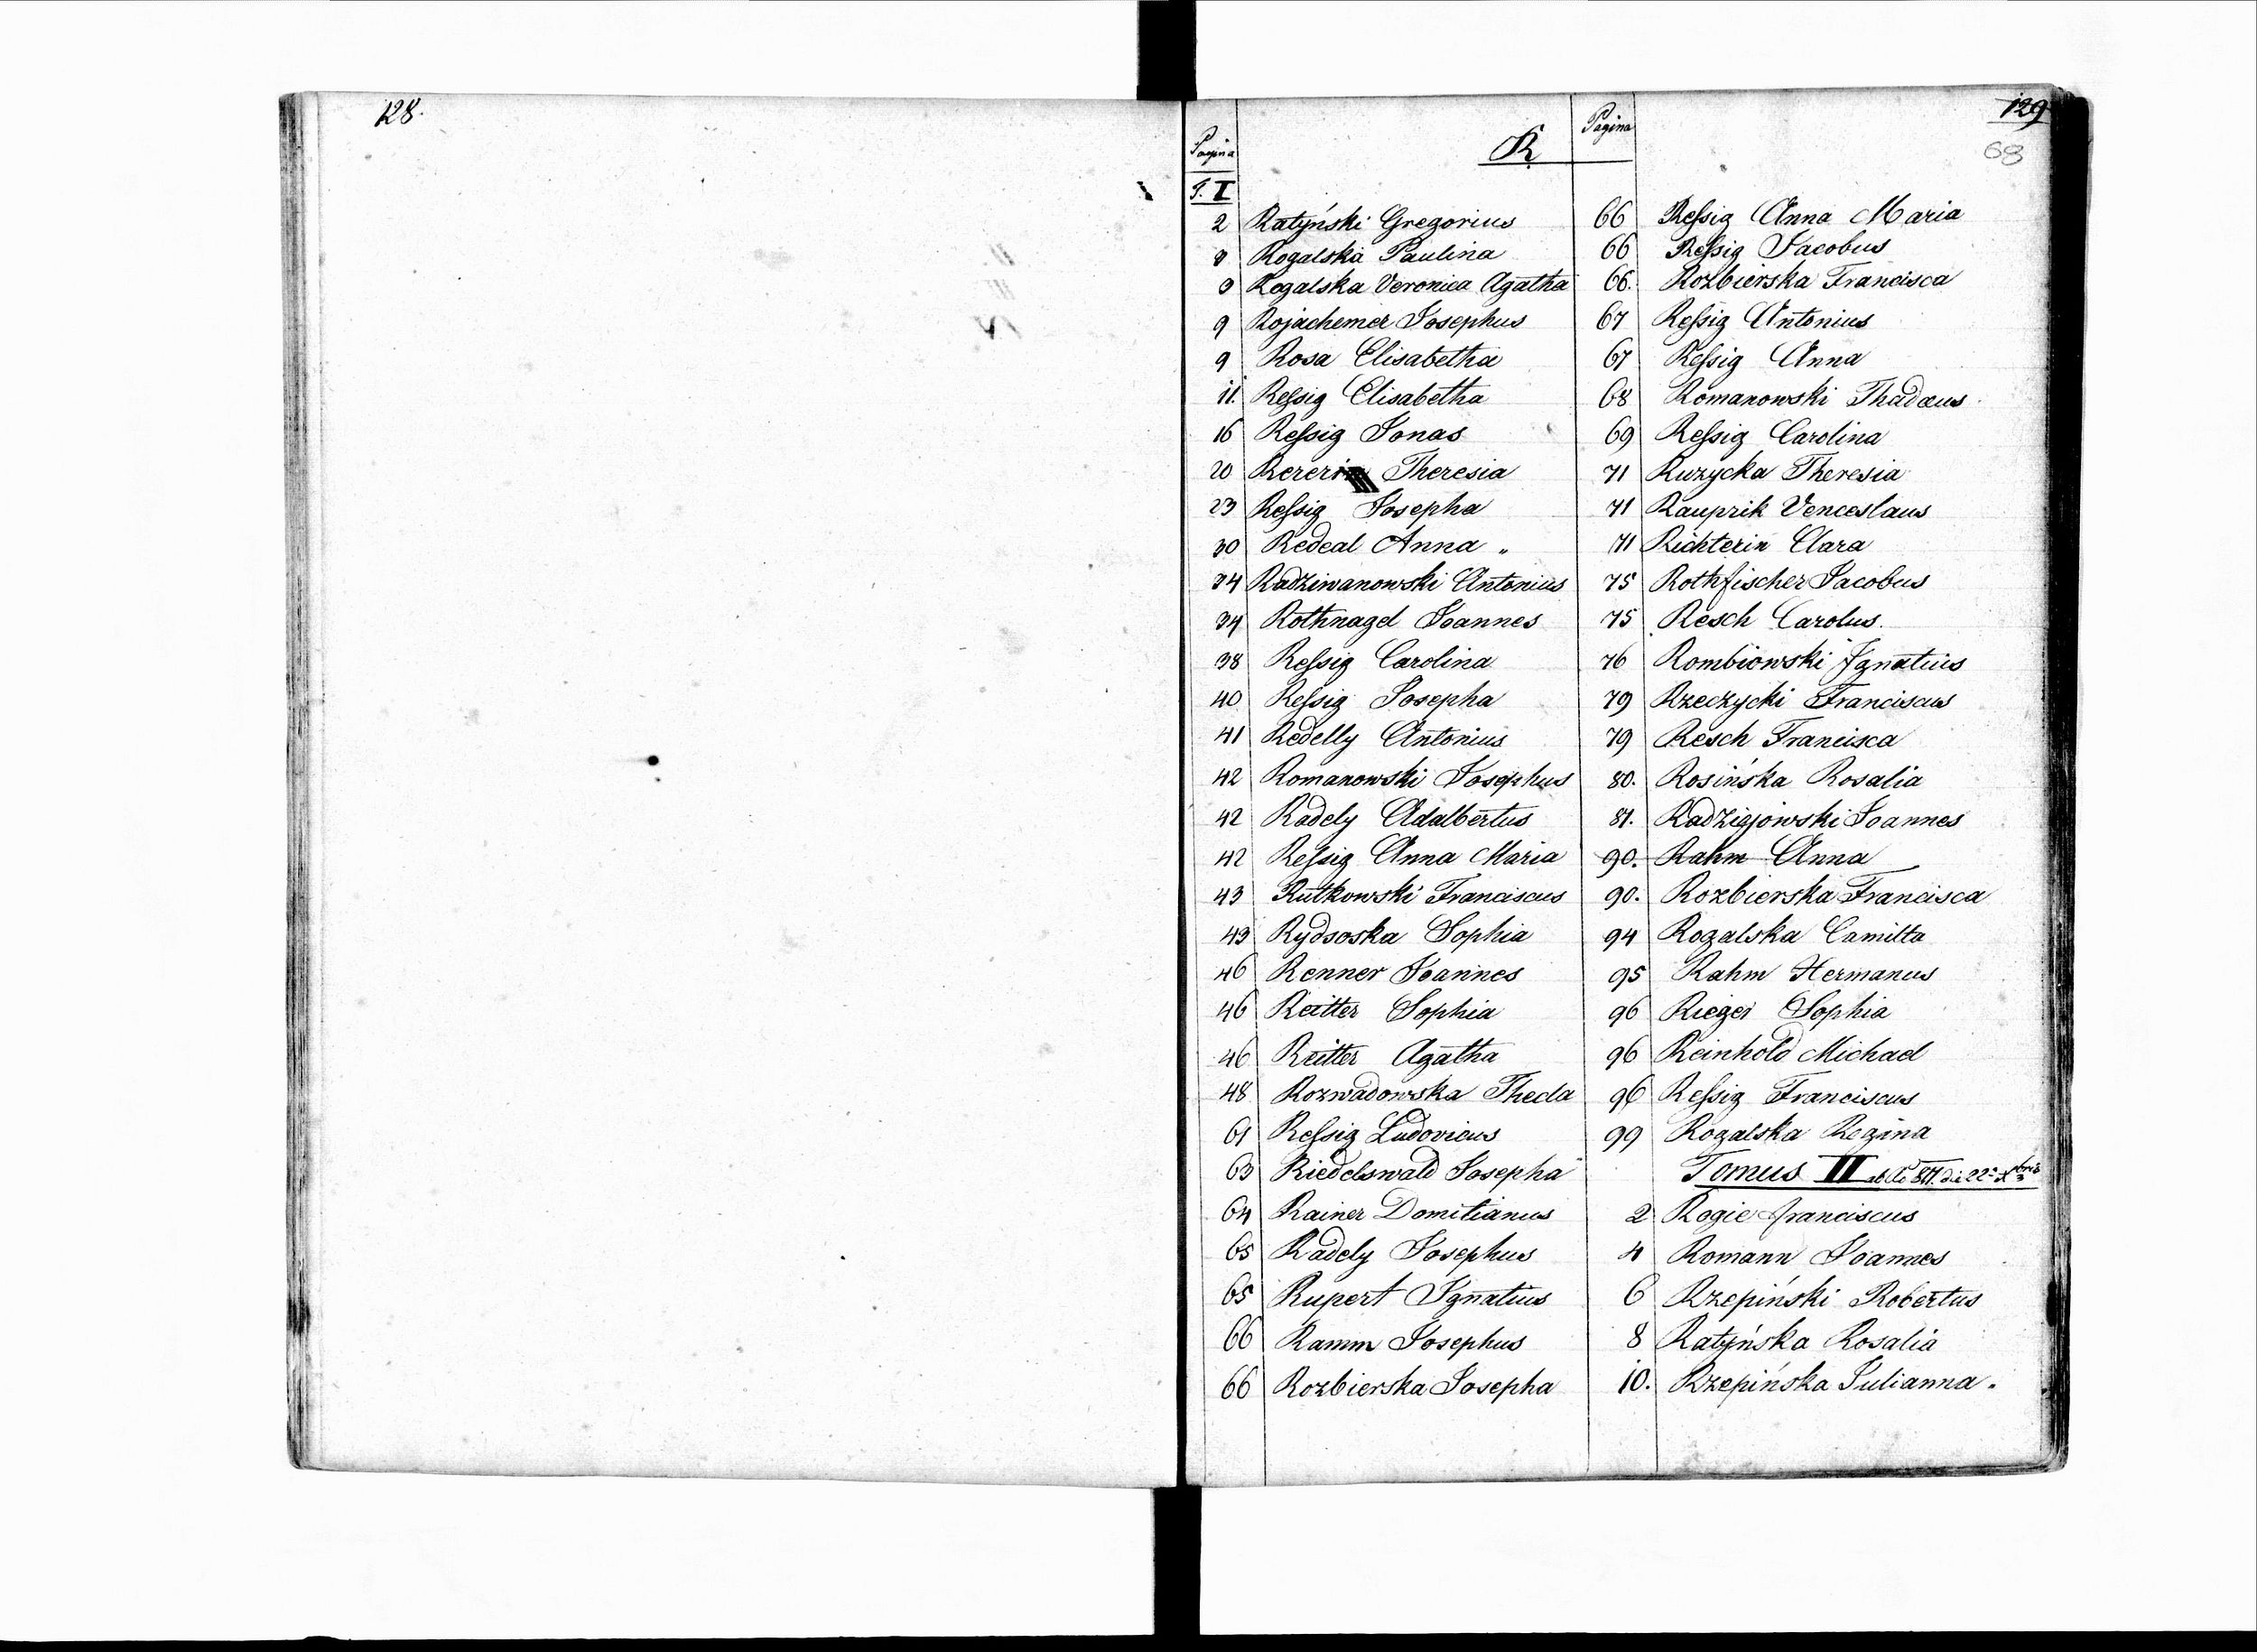 128.
129
68
Pagina
R
Pagina
T. I
2 Ratyński Gregorius
8 Rogalska Paulina
8 Rogalska Veronica Agatha
9 Rojachemer Josephus
9 Rosa Elisabetha
11. Reſsig Elisabetha
16 Reſsig Jonas
20 Theresia
23 Reſsig Josepha
30 Redeal Anna
34 Radziwanowski Antonius
34 Rothnagel Joannes
38 Reſsig Carolina
40 Reſsig Josepha
41 Redelly Antonius
42 Romanowski Josephus
42 Radely Adalbertus
42 Reſsig Anna Maria
43 Rutkowski Franciscus
43 Rydsoska Sophia
46 Renner Joannes
46 Reitter Sophia
46 Reitter Agatha
48 Rozwadowska Thecla
61 Reſsig Ludovicus
63 Riedelswald Josepha
64 Rainer Domitianus
65 Radely Josephus
65 Rupert Ignatius
66 Ramm Josephus
66 Rozbierska Josepha
66 Reſsig Anna Maria
66 Reſsig Jacobus
66. Rozbierska Francisca
67 Reſsig Antonius
67 Reſsig Anna
68 Romanowski Thadæus
69 Reſsig Carolina
71 Ruzycka Theresia
71 Rauprik Venceslaus
71 Richterin Clara
75 Rothfischer Jacobus
75 Resch Carolus.
76 Rombiowski Ignatius
79 Rzeczycki Franciscus
79 Resch Francisca
80. Rosińska Rosalia
81. Radziejowski Joannes
90. Rahm Anna
90. Rozbierska Francisca
94 Rogalska Camilla
95 Rahm Hermanus
96 Rieger Sophia
96 Reinhold Michael
96 Reſsig Franciscus
99 Rogalska Regina
Tomus II
2 Rogie Franciscus
4 Romann Joannes
6 Rzepiński Robertus
8 Ratyńska Rosalia
10. Rzepińska Julianna.